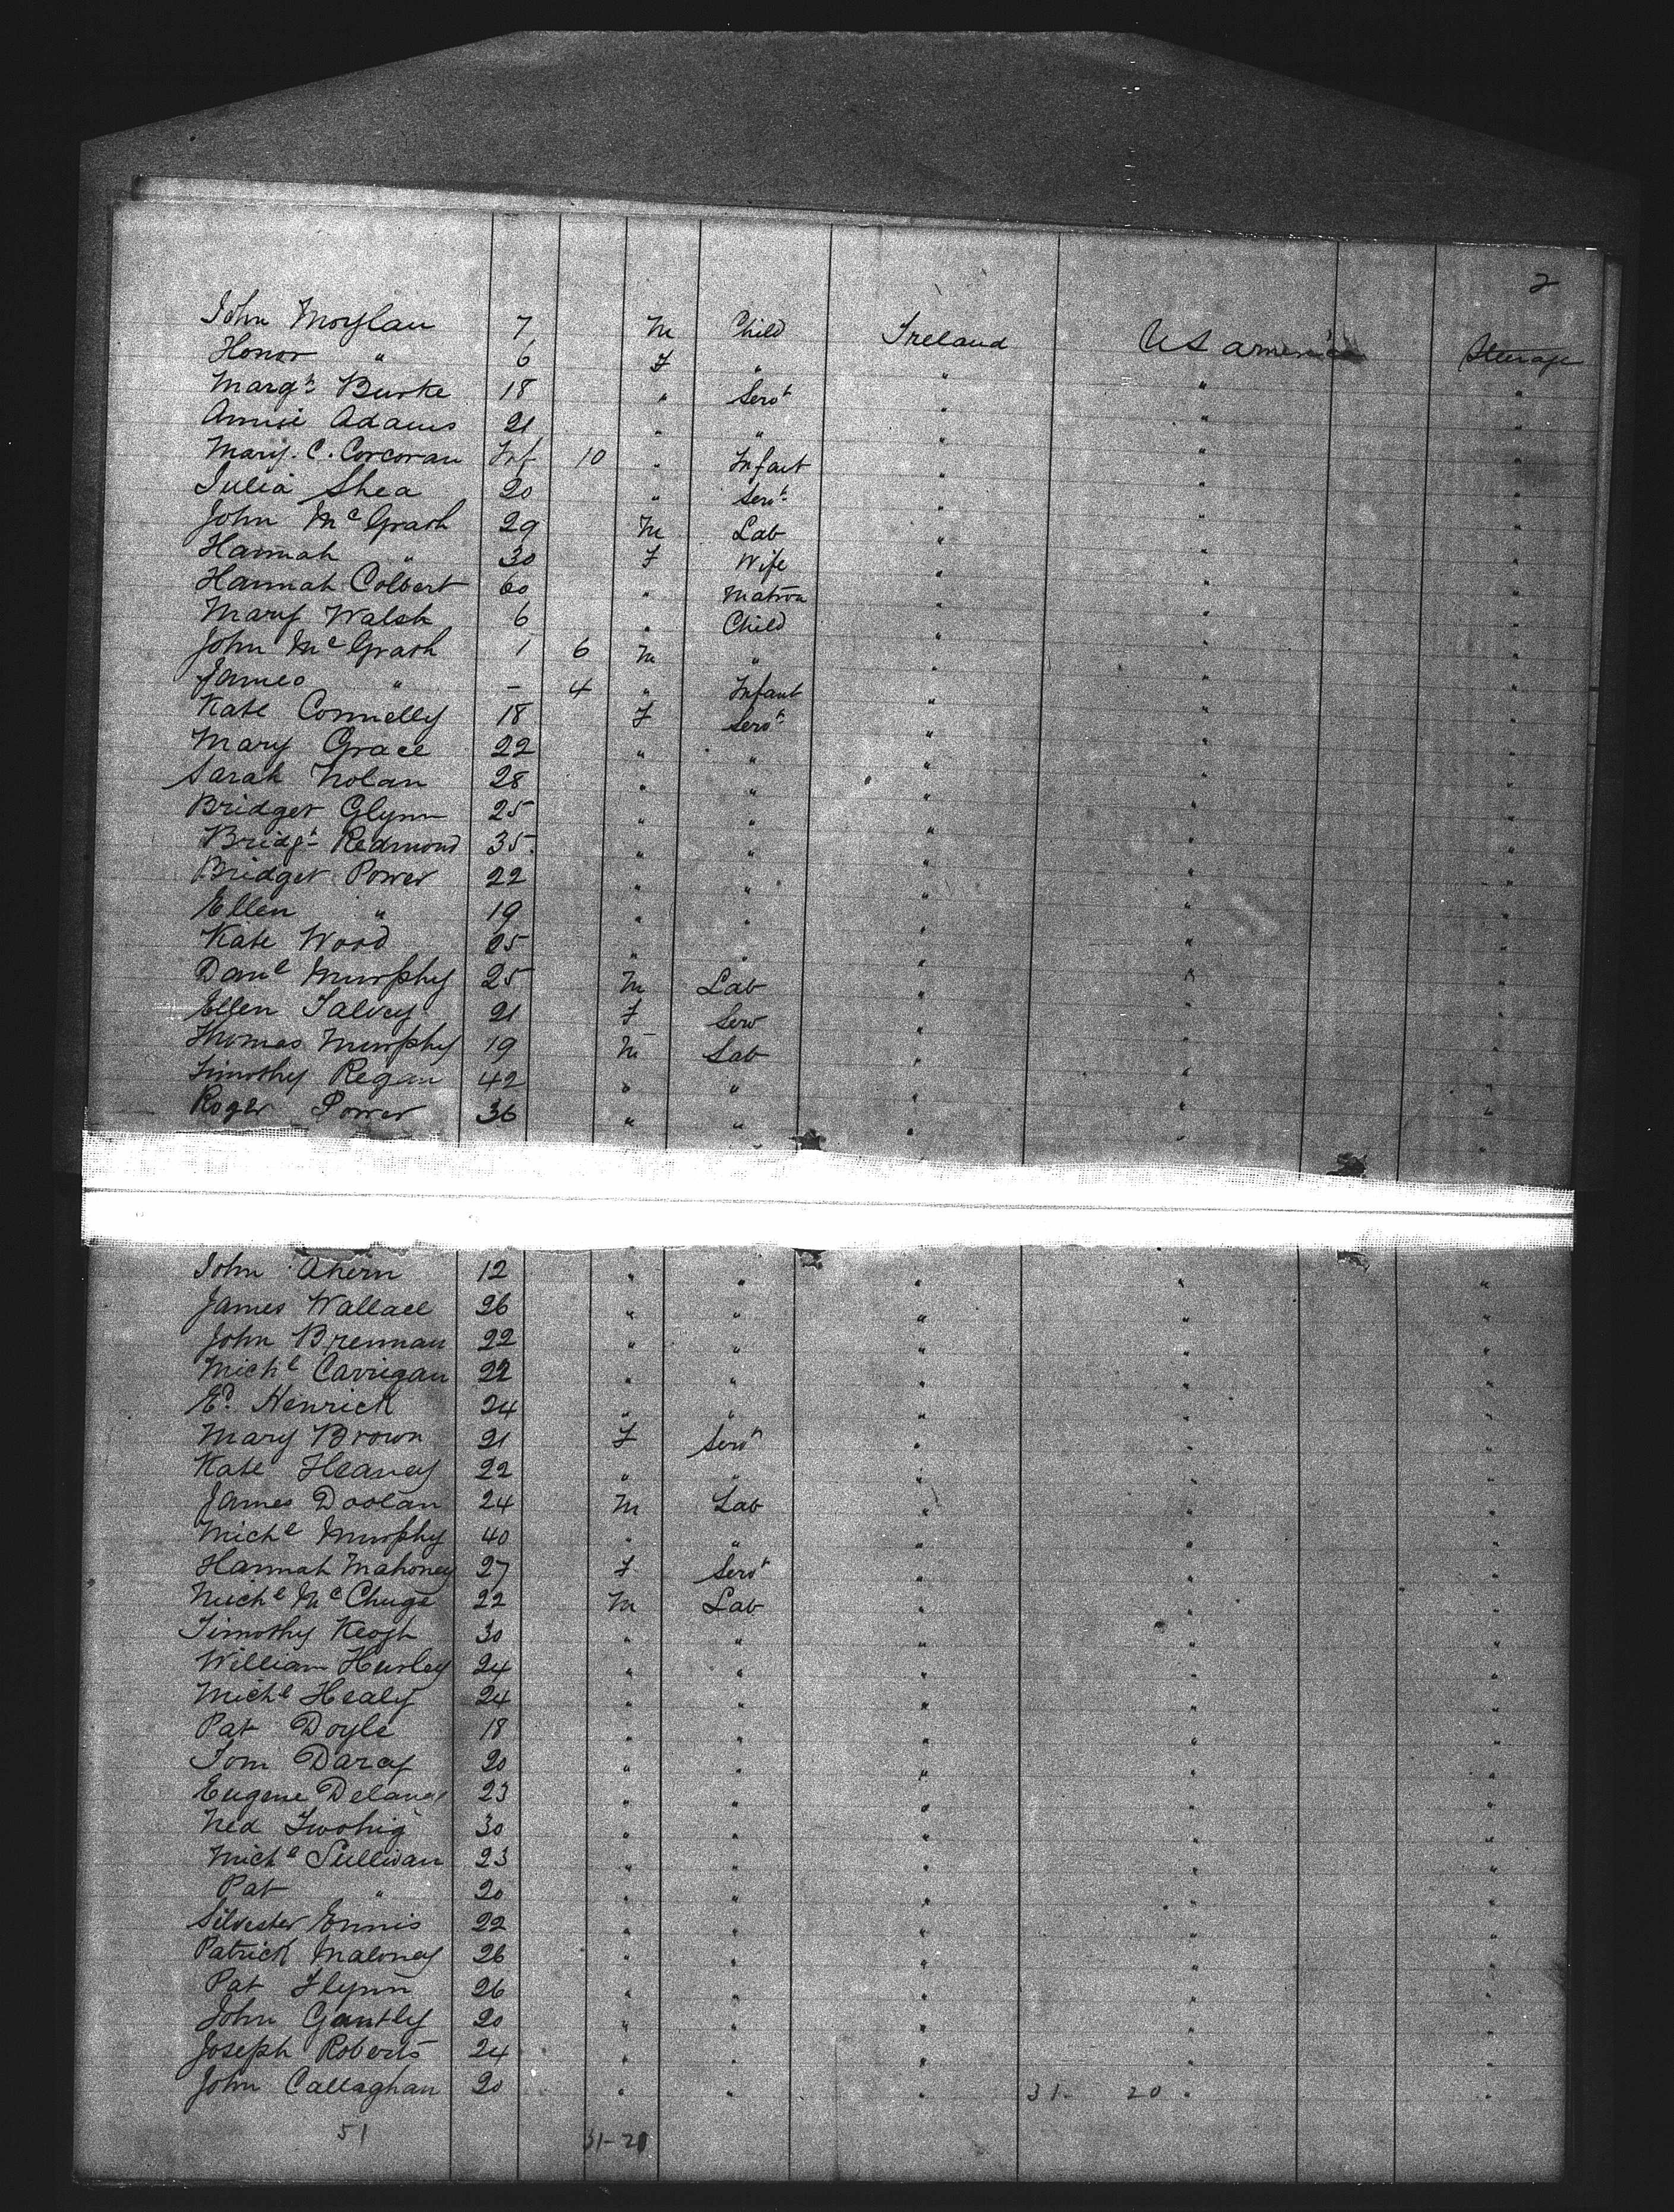 2
John Moylan 7 M Child Ireland US america Steerage
Honor " 6 F " " " "
Margt Burke 18 " Servt " " "
Annie Adams 21 " " " " "
Mary. C. Corcoran Inf 10 " Infant " " "
Julia Shea 20 " Servt " " "
John McGrath 29 M Lab " " "
Hannah " 30 F Wife " " "
Hannah Colbert 60 " Matron " " "
Mary Walsh 6 " Child " " "
John McGrath 1 6 M " " " "
James " - 4 " Infant " " "
Kate Connelly 18 F Servt " " "
Mary Grace 22 " " " " "
Sarah Nolan 28 " " " " "
Bridget Glynn 25 " " " " "
Bridgt Redmond 35 " " " " "
Bridget Power 22 " " " " "
Ellen " 19 " " " " "
Kate Wood 25 " " " " "
Danl Murphy 25 M Lab " " "
Ellen Salvey 21 F Serv " " "
Thomas Murphy 19 M Lab " " "
Timothy Regan 42 " " " " "
Roger Power 36 " " " " "
John Ahern 12 " " " " "
James Wallace 26 " " " " "
John Brennan 22 " " " " "
Michl Carrigan 22 " " " " "
Ed. Henrick 24 " " " " "
Mary Brown 21 F Servt " " "
Kate Heaney 22 " " " " "
James Doolan 24 M Lab " " "
Michl Murphy 40 " " " " "
Hannah Mahoney 27 F Servt " " "
Michl 22 M Lab " " "
Timothy Keogh 30 " " " " "
William Hurley 24 " " " " "
Michl Healy 24 " " " " "
Pat Doyle 18 " " " " "
Tom Darcy 20 " " " " "
Eugene Delaney 23 " " " " "
Ned Twohig 30 " " " " "
Michl Sullivan 23 " " " " "
Pat " 20 " " " " "
Silvester Ennis 22 " " " " "
Patrick Maloney 26 " " " " "
Pat Flynn 26 " " " " "
John Gantly 20 " " " " "
Joseph Roberts 24 " " " " "
John Callaghan 20 " " " 31- 20 " "
51 31-20